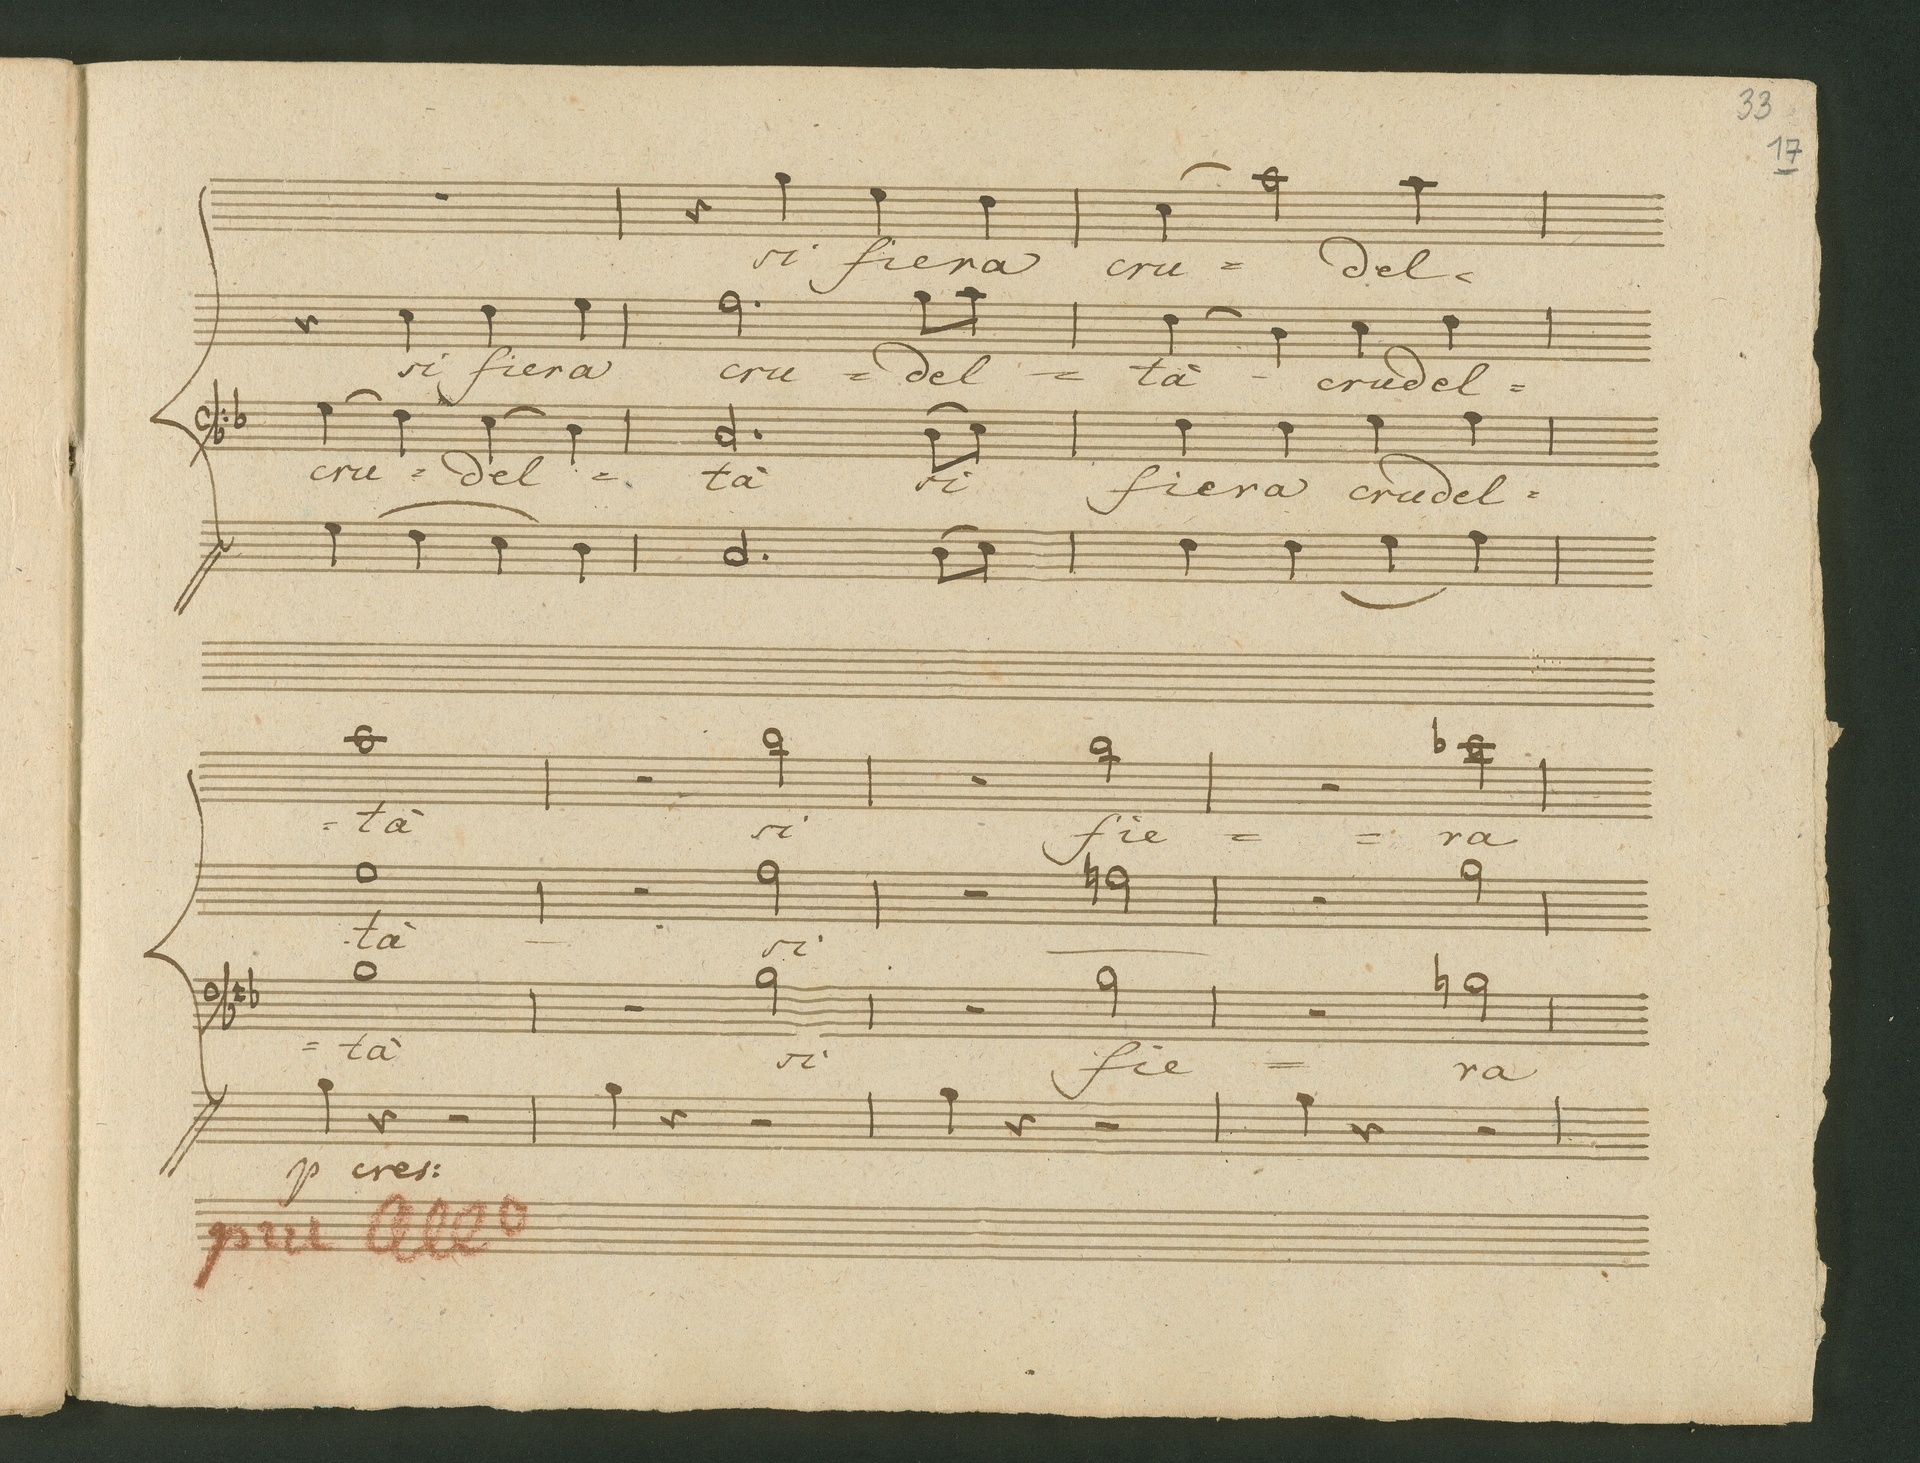 33
17
si fiera cru = del =
si fiera cru = del = tà - crudel =
cru = del = tà si fiera crudel =
= tà si fie = = ra
tà si
= tà si fie = ra
p cres:
piu All°